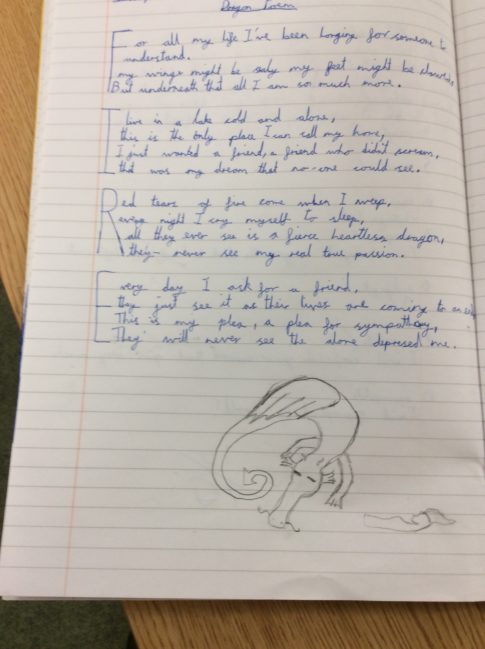 Dragon Poem
For all my life I've been longing for someone to
understand.
my wings might be scaly my feet might be
But underneath that all I am so much more.
I live in a lake cold and alone,
this is the only place I can call my home,
I just wanted a friend, a friend who didn't scream,
that was my dream that no-one could see.
Red tears of fire come when I weep,
Every night I cry myself to sleep,
all they ever see is a fierce heartless dragon,
they never see my real true passion.
Every day I ask for a friend,
they just see it as their lives are coming to an
This is my plea, a plea for sympathy,
They will never see the alone depresed me.